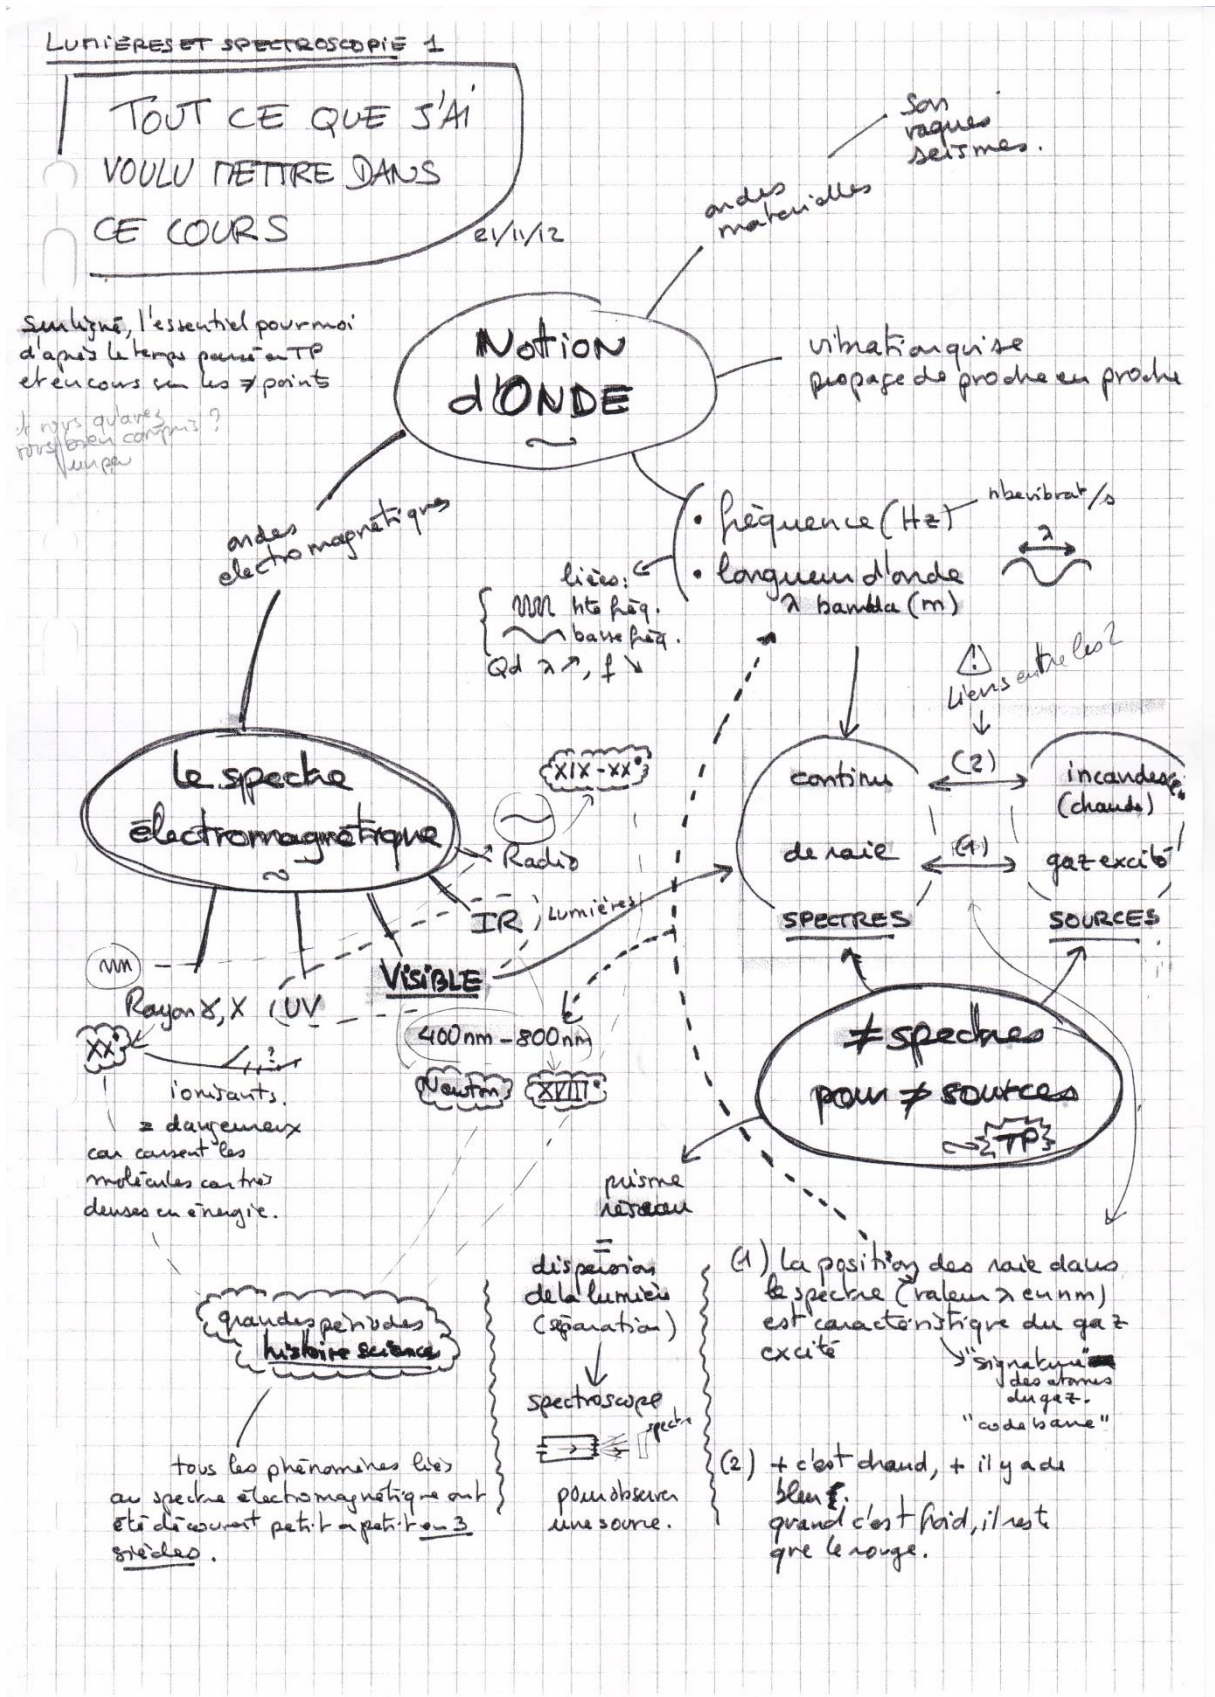 LUMIÈRES ET SPECTROSCOPIE 1
TOUT CE QUE J'AI
VOULU METTRE DANS
CE COURS
21/11/12
Surligné, l'essentiel pour moi
d'après le temps passé en TP
et en cours sur les ≠ points
et vous qu'avez
vous bien compris ?
un peu
son
vagues
seismes.
ondes
materielles
Notion
d'ONDE
vibration qui se
propage de proche en proche
ondes
electromagnétiques
• fréquence (Hz)
nbe vibrat/s
• longueur d'onde
λ
λ bambda (m)
liées :
hte fréq.
basse fréq.
Qd λ ↗, f ↘
⚠
liens entre les 2
le spectre
électromagnétique
XIX - XX°
Radio
IR
Lumières
VISIBLE
UV
Rayon γ, X
XX°
?
ionisants.
= dangereux
car cassent les
molécules car très
denses en énergie.
400nm - 800nm
Newton
XVII°
continu
(2)
incandesc.
(chaude)
de raie
(1)
gaz excité
SPECTRES
SOURCES
≠ spectres
pour ≠ sources
TP
prisme
réseau
=
dispersion
de la lumière
(séparation)
spectroscope
spectre
pour observer
une source.
grandes périodes
histoire science
tous les phénomènes liés
au spectre électromagnétique ont
été découvert petit à petit en 3
siècles.
(1) la position des raie dans
le spectre (valeur λ en nm)
est caractéristique du gaz
excité
"signature"
des atomes
du gaz.
"code barre"
(2) + c'est chaud, + il y a de
bleu.
quand c'est froid, il reste
que le rouge.